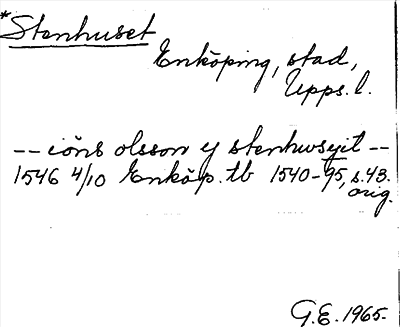 *Stenhuset
Enköping, stad,
Upps. l.
-- iöns olsson y stenhwsyit --
1546 4/10 Enköp. tb 1540-95, s. 43.
orig.
G.E. 1965.